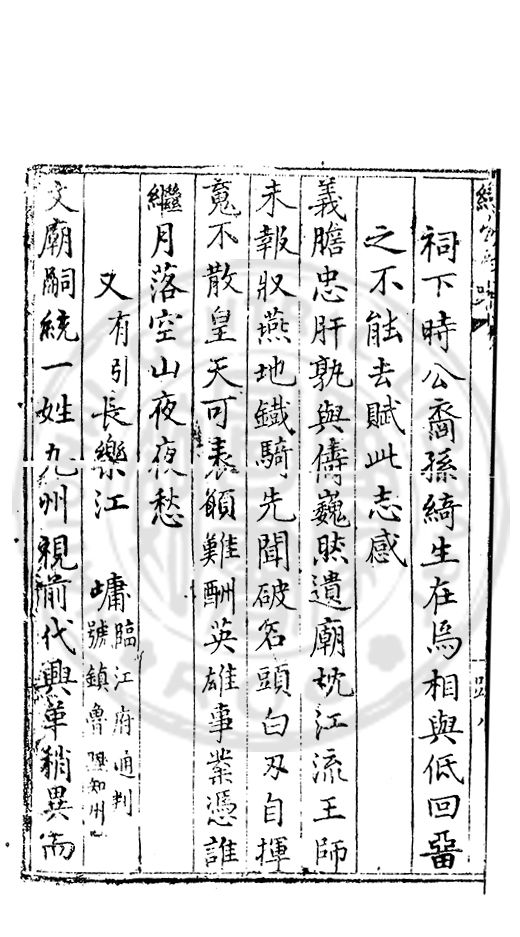 祠下時公裔孫綺生在焉相與低回畱
之不能去賦此志感
義膽忠肝孰與儔巍然遺廟枕江流王師
未報収燕地鐵騎先聞破石頭白刃自揮
䰟不散皇天可表願難酬英雄事業憑誰
繼月落空山夜夜愁
又有引長樂江 㙜臨江府通判
號鎮魯歷知州
文廟嗣統一姓九州視前代興革稍異而